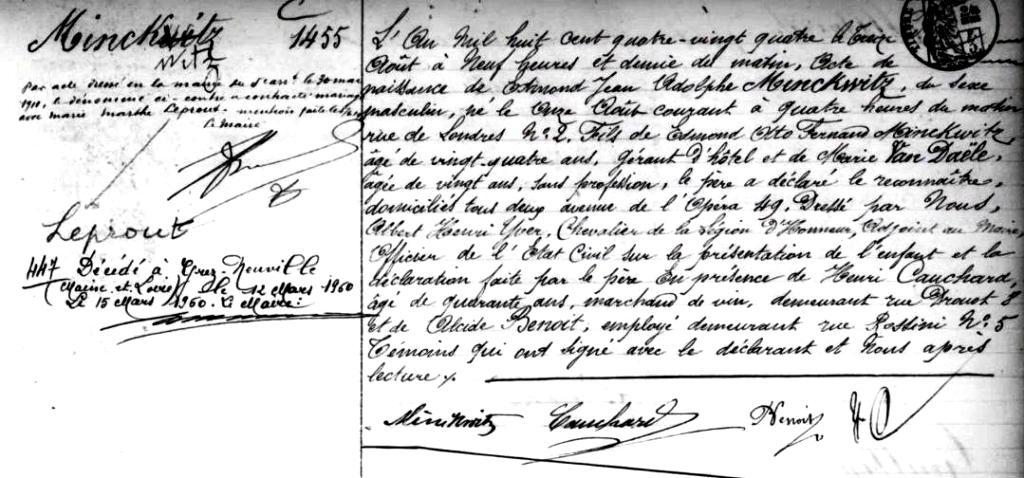 Minckwitz
witz
1455
Par acte dressé en la mairie du 8e arrt le 30 mai
1910, le dénommé ci-contre a contracté mariage
avec Marie Marthe Leprout - mention faite le
Le Maire
Leprout
447 Décédé à Grez-Neuville
(Maine et Loire) le 12 Mars 1960
Le 15 Mars 1960. Le Maire:
L'An Mil huit cent quatre-vingt quatre le Treize
Août à Neuf heures et demie du matin, Acte de
naissance de Edmond Jean Adolphe Minckwitz, du sexe
masculin, né le Onze Août courant à quatre heures du matin
rue de Londres No 2. Fils de Edmond Otto Fernand Minckwitz,
âgé de vingt-quatre ans, gérant d'hôtel et de Marie Van Daële,
âgée de vingt ans, sans profession, le père a déclaré le reconnaître,
domiciliés tous deux avenue de l'Opéra 49. Dressé par Nous,
Albert Henri Yver, Chevalier de la Légion d'Honneur, Adjoint au Maire,
Officier de l'Etat Civil sur la présentation de l'enfant et la
déclaration faite par le père en présence de Henri Cauchard,
âgé de quarante ans, marchand de vin, demeurant rue Drouot 8
et de Alcide Benoit, employé demeurant rue Rossini No 5
Témoins qui ont signé avec le déclarant et Nous après
lecture
Minckwitz Cauchard Benoit